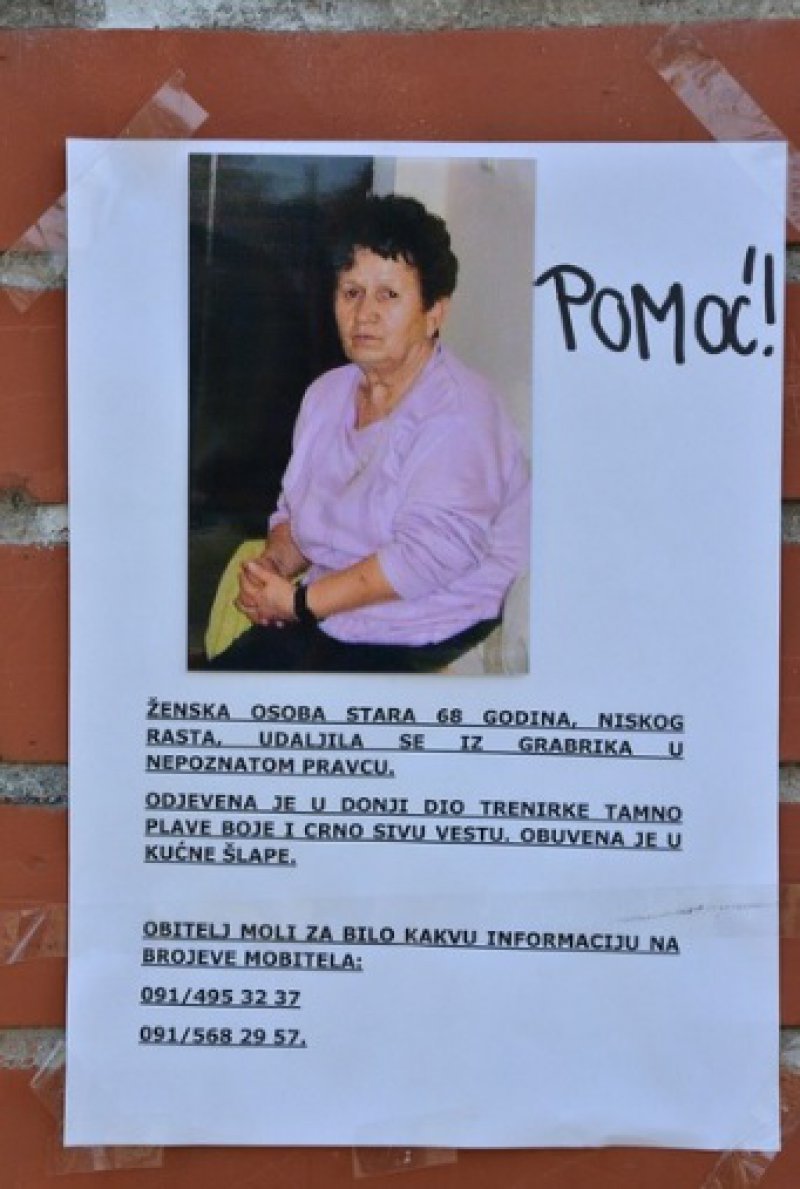 POMOĆ!
ŽENSKA OSOBA STARA 68 GODINA, NISKOG
RASTA, UDALJILA SE IZ GRABRIKA U
NEPOZNATOM PRAVCU.
ODJEVENA JE U DONJI DIO TRENIRKE TAMNO
PLAVE BOJE I CRNO SIVU VESTU. OBUVENA JE U
KUĆNE ŠLAPE.
OBITELJ MOLI ZA BILO KAKVU INFORMACIJU NA
BROJEVE MOBITELA:
091/495 32 37
091/568 29 57.